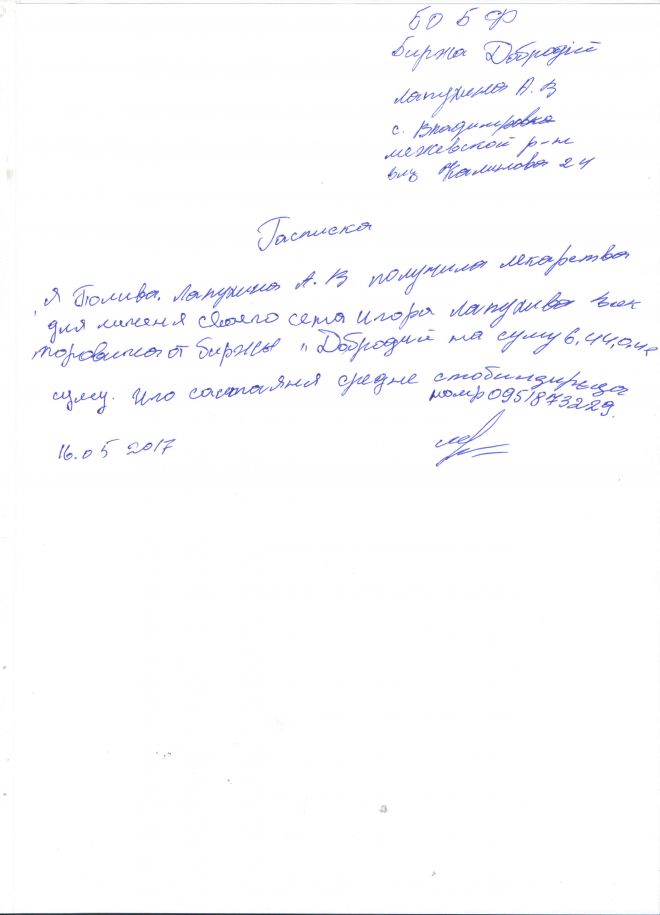 БО БФ
Биржа Добродій
Лапухина А. В
с. Владимировка
межевской р-н
влц Калинова 24
Расписка
Я Лапухина А. В получила лекарства
для личеня своего сена Игора Лапухина Вик
торовича от Биржы „Добродий на суму 6,44,0
суму. Иго састаяня средне стобилдирыца
номр 0951873229.
16.05 2017